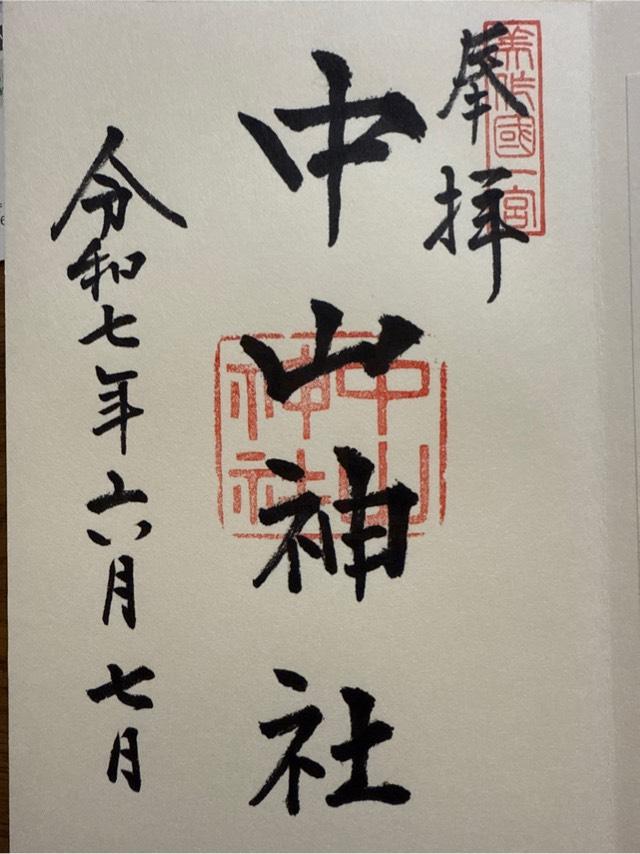 美作國一宮
奉拝
中山神社
中山
神社
令和七年六月七日